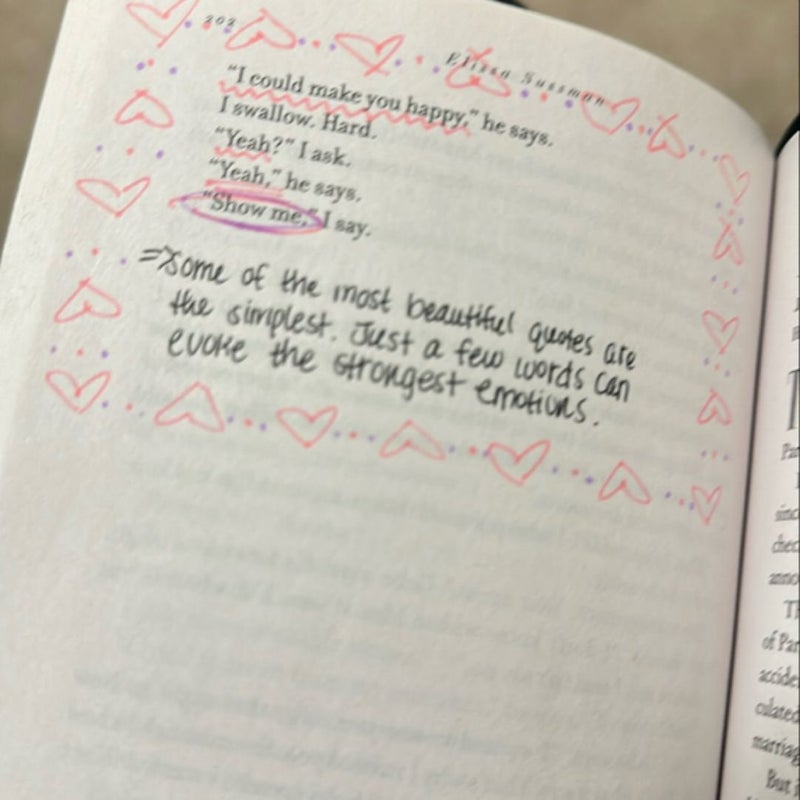 202
Elissa Sussman
"I could make you happy," he says.
I swallow. Hard.
"Yeah?" I ask.
"Yeah," he says.
"Show me," I say.
⇒Some of the most beautiful quotes are
the simplest. Just a few words can
evoke the strongest emotions.
of Par
accide
culated
marriag
But i